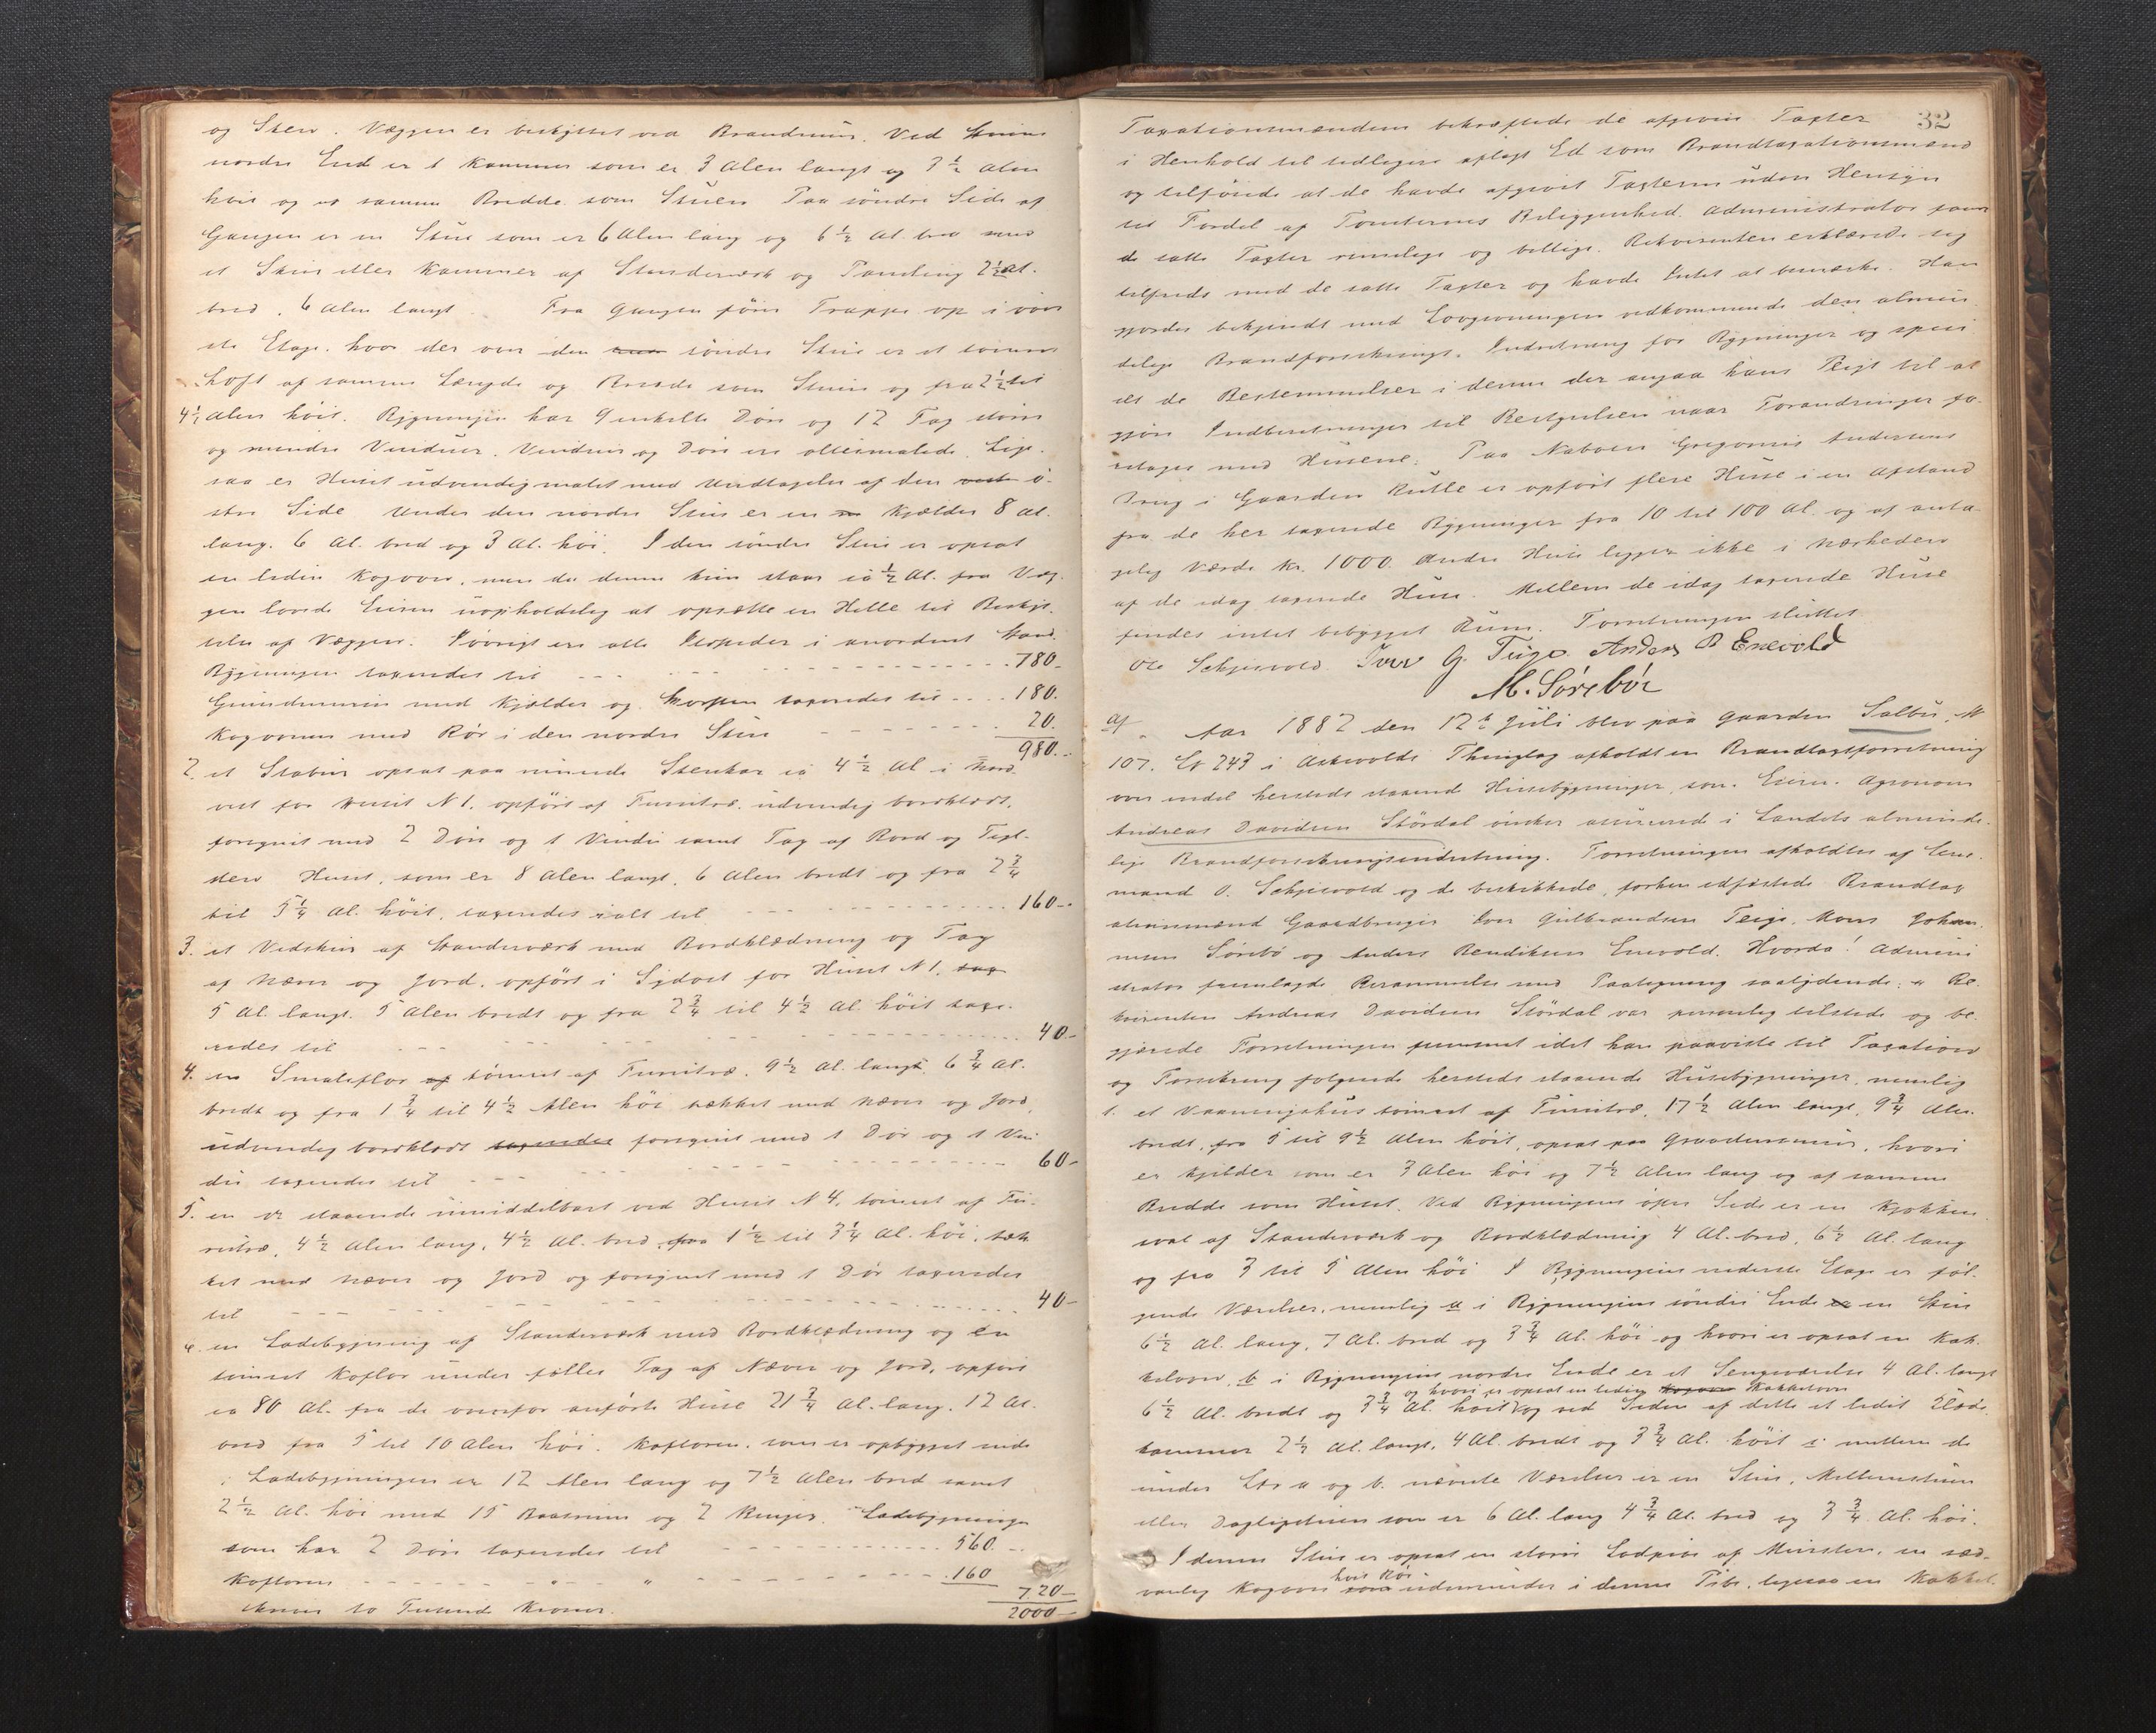 og Skew. Væggen er beskyttet ved Brandmuur. Ved Stuens
nordre End er 1 Kammer som er 3 Alen langt og 3 1/2 Alen
høit og af samme Bredde som Stuen. Paa søndre Side af
Gangen er en Stue som er 6 Alen lang og 6 1/2 Al. bred med
et Skur eller Kammer af Standerværk og Paneling 2 1/2 Al.
bred, 6 Alen langt. Fra Gangen fører Trappe op i øver
ste Etage, hvor der over den søndre Stue er et tømret
Loft af samme Længde og Bredde som Stuen og fra 2 1/2 til
4 1/2 Alen høit. Bygningen har 9 enkelte Døre og 12 Fag større
og mindre Vinduer. Vinduer og Døre ere oliemalede. Lige-
saa er Huset udvendig malet med Undtagelse af den vest ø-
stre Side. Under den nordre Stue er en Kjælder 8 Al.
lang, 6 Al. bred og 3 Al. høi. I den søndre Stue er opsat
en liden Kogovn, men da denne kun staar ca 1/2 Al. fra Væg-
gen lovede Eieren uopholdelig at opsætte en Helle til Beskyt-
telse af Væggen. Iøvrigt ere alle Ildsteder i anordnet Stand.
Bygningen taxeredes til - - - 780.
Grundmuren med Kjælder og Skorsten taxeredes til - - 180.
Kogovnen med Rør i den nordre Stue - - - 20.
980.-
2. et Stabur opsat paa murede Stenkar ca 4 1/2 Al. i Nord-
vest for Huset N 1, opført af Furutræ, udvendig bordklædt,
forsynet med 2 Døre og 1 Vindu samt Tag af Bord og Tegl-
sten. Huset, som er 8 Alen langt, 6 Alen bredt og fra 2 3/4
til 5 1/4 Al. høit, taxeredes ialt til - - - 160.-
3. et Vedskur af Standerværk med Bordklædning og Tag
af Næver og Jord, opført i Sydost for Huset N 1, tax
5 Al. langt, 5 Alen bredt og fra 2 3/4 til 4 1/2 Al. høit taxe-
redes til - - - 40.-
4. en Smaleflor af tømret af Furutræ, 9 1/2 Al. langt, 6 3/4 Al.
bredt og fra 1 3/4 til 4 1/2 Alen høi tækket med Næver og Jord,
udvendig bordklædt taxeredes forsynet med 1 Dør og 1 Vin-
du taxeredes til - - - 60-
5. en do staaende umiddelbart ved Huset N 4, tømret af Fu-
rutræ, 4 1/2 Alen lang, 4 1/2 Al. bred, fra 1 1/2 til 3 1/4 Al. høi, tæk-
ket med Næver og Jord og forsynet med 1 Dør taxeredes
til - - - 40-
6. en Ladebygning af Standerværk med Bordklædning og en
tømret Koflor under fælles Tag af Næver og Jord, opført
ca 80 Al. fra de ovenfor anførte Huse 21 3/4 Al. lang, 12 Al.
bred fra 5 til 10 Alen høi. Kofloren, som er opbygget inde
i Ladebygningen er 12 Alen lang og 7 1/2 Alen bred samt
2 1/2 Al. høi med 15 Baasrum og 2 Binger. Ladebygningen
som har 2 Døre taxeredes til - - - 560.-
Kofloren - - - 160
720-
Skriver to Tusinde Kroner. 2000-
32
Taxationsmændene bekræftede de afgivne Taxter
i Henhold til tidligere aflagt Ed som Brandtaxationsmænd
og tilføiede at de havde afgivet Taxterne uden Hensyn
til Fordel af Tomternes Beliggenhed. Administrator fandt
de satte Taxter rimelige og billige. Rekvirenten erklærede sig
tilfreds med de satte Taxter og havde Intet at bemærke. Han
gjordes bekjendt med Lovgivningen vedkommende den almin-
delige Brandforsikrings-Indretning for Bygninger og spesi-
elt de Bestemmelser i denne der angaa hans Pligt til at
gjøre Indberetninger til Bestyrelsen naar Forandringer fo-
retages med Husene. Paa Naboen Gregorius Andersens
Brug i Gaarden Kulle er opført flere Huse i en Afstand
fra de her taxerede Bygninger fra 10 til 100 Al. og af anta-
gelig Værdi Kr. 1000. Andre Huse ligger ikke i Nærheden
af de idag taxerede Huse. Mellem de idag taxerede Huse
findes intet bebygget Rum. Forretningen sluttet
Ole Schjervold. Iver G. Teige. Anders B Enevold
M. Sørebøe
Af. Aar 1882 den 12te Juli blev paa Gaarden Salbu, M
107. Lb 243 i Askvolds Thinglag afholdt en Brandtaxtforretning
over endel hersteds staaende Husebygninger, som Eieren Agronom
Andreas Davidsen Størdal ønsker assurerede i Landets alminde-
lige Brandforsikringsindretning. Forretningen afholdtes af Lens-
mand O. Schjervold og de beskikkede, forhen edfæstede Brandtax
ationsmænd Gaardbruger Iver Gulbrandsen Teige, Mons Johan-
nesen Sørebø og Anders Bendiksen Enevold. Hvorda! Admini-
strator fremlagde Berammelse med Paategning saalydende: " Re-
kvirenten Andreas Davidsen Størdal var personlig tilstede og be-
gjærede Forretningen fremmet idet han paaviste til Taxation
og Forsikring følgende hersteds staaende Husebygninger, nemlig
1. et Vaaningshus tømret af Furutræ, 17 1/2 Alen langt, 9 3/4 Alen
bredt, fra 5 til 9 1/2 Alen høit, opsat paa Graastensmuur, hvori
er Kjelder som er 3 Alen høi og 7 1/2 Alen lang og af samme
Bredde som Huset. Ved Bygningens østre Side er en Kjøkken-
sval af Standerværk og Bordklædning 4 Al. bred, 6 1/2 Al. lang
og fra 3 til 5 Alen høi. I Bygningens nederste Etage er føl-
gende Værelser, nemlig a i Bygningens søndre Ende er en Stue
6 1/2 Al. lang, 7 Al. bred og 3 3/4 Al. høi og hvori er opsat en Kak-
kelovn, b i Bygningens nordre Ende er et Sengeværelse 4 Al. langt
og hvori er opsat en liden Kogovn Kakkelovn
6 1/2 Al. bredt og 3 3/4 Al. høit og ved Siden af dette et lidet Klæde-
kammer 2 1/2 Al. langt, 4 Al. bredt og 3 3/4 Al. høit c mellem de
under Ltr a og b. nævnte Værelser er en Stue, Mellemstuen
eller Dagligstuen som er 6 Al. lang 4 3/4 Al. bred og 3 3/4 Al. høi.
I denne Stue er opsat en større Lodpibe af Mursten, en sæd-
hvis Rør
vanlig Kogovn som udmunder i denne Pibe, ligesaa en Kakkel-